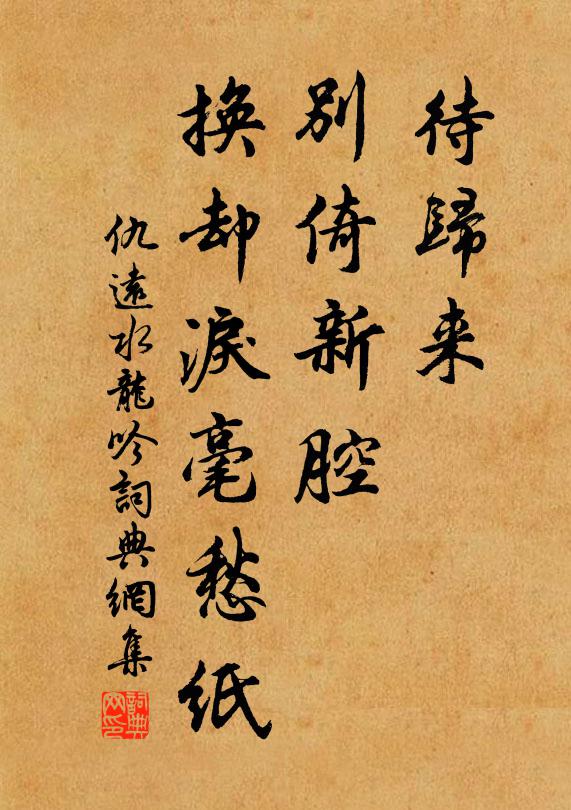 待歸来
別倚新腔
換却淚毫愁紙
仇遠水龍吟詞典網集
詞典网印